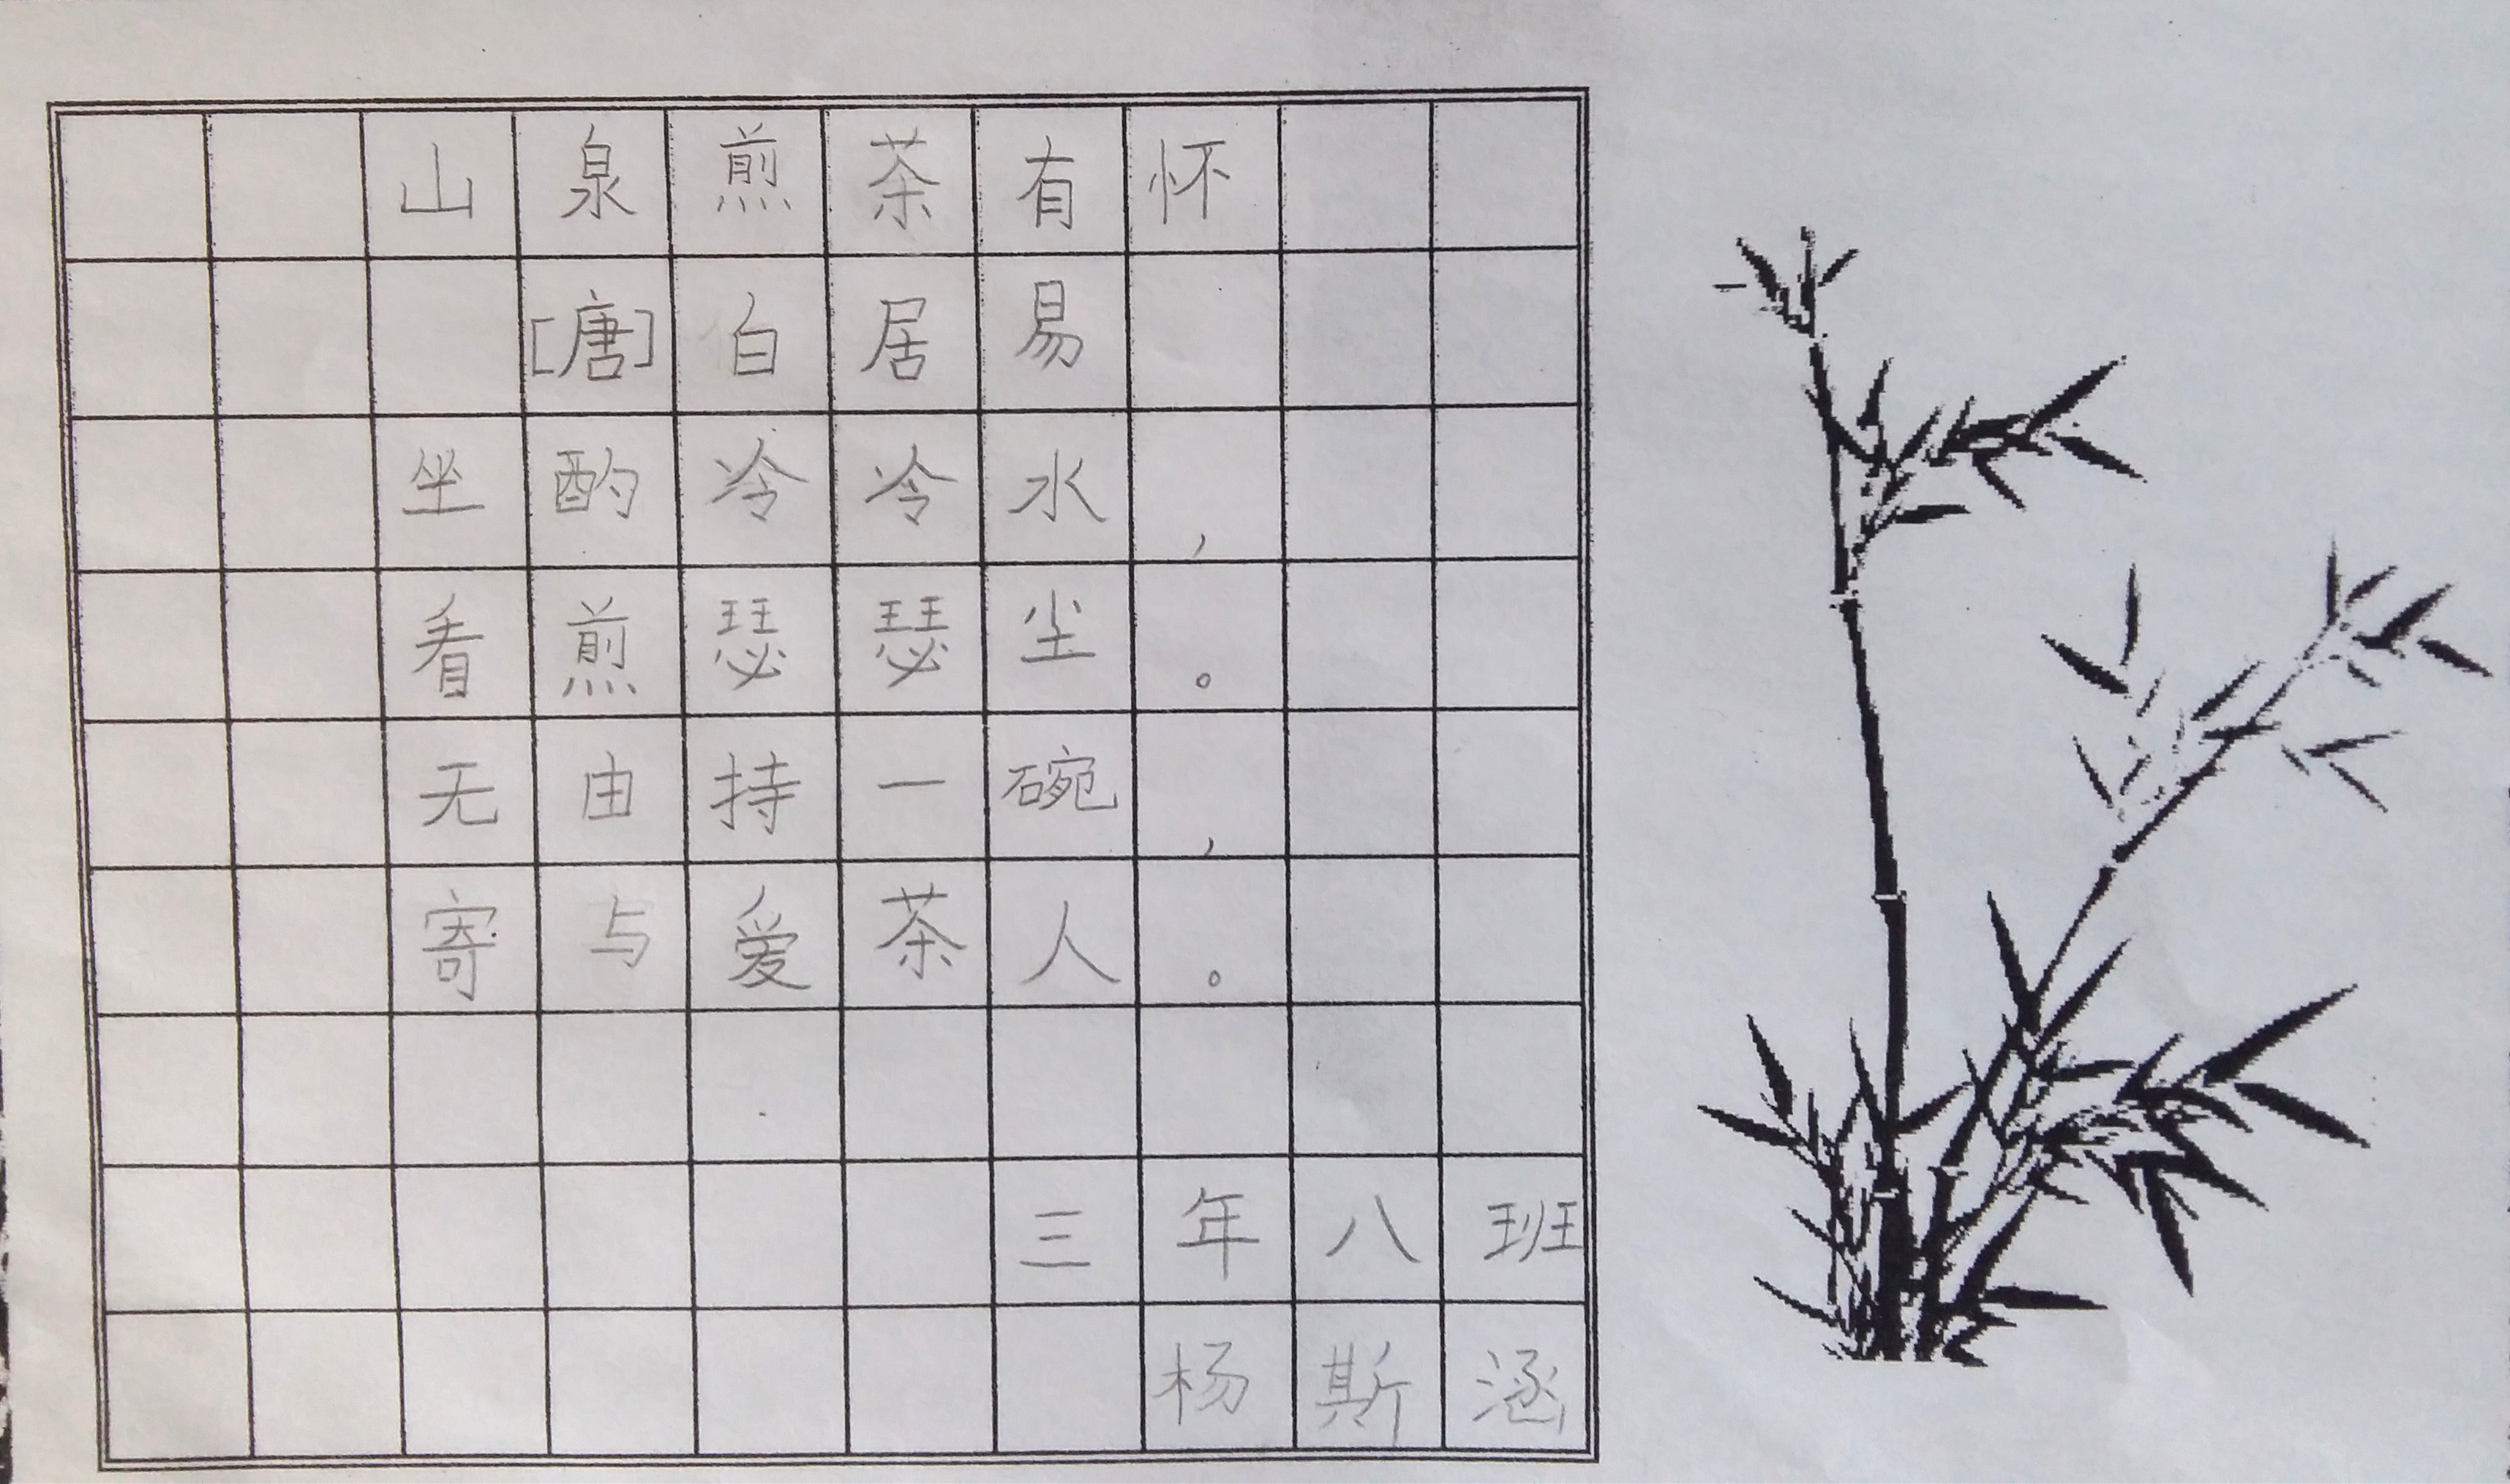 山泉煎茶有怀
[唐]白居易
坐酌冷冷水，
看煎瑟瑟尘。
无由持一碗，
寄与爱茶人。
三年八班
杨斯涵